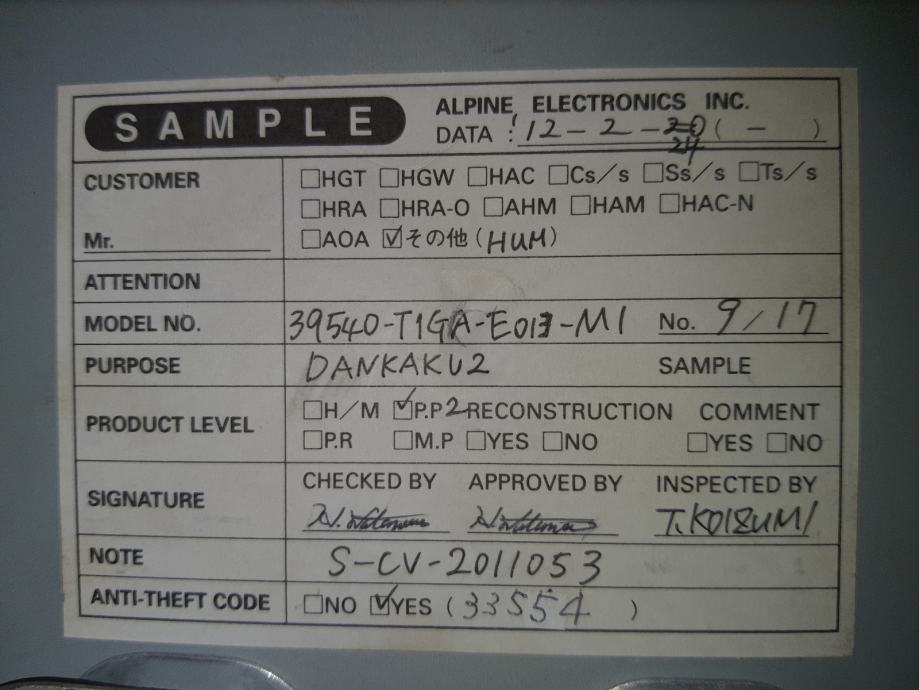 SAMPLE
ALPINE ELECTRONICS INC.
DATA : 12-2-20 ( - )
24
CUSTOMER
□HGT □HGW □HAC □Cs/s □Ss/s □Ts/s
□HRA □HRA-O □AHM □HAM □HAC-N
Mr. □AOA ☑その他 (HUM)
ATTENTION
MODEL NO. 39540-T1GA-E013-M1 No. 9/17
PURPOSE DANKAKU2 SAMPLE
PRODUCT LEVEL
□H/M ☑P.P2 RECONSTRUCTION COMMENT
□P.R □M.P □YES □NO □YES □NO
SIGNATURE
CHECKED BY APPROVED BY INSPECTED BY
T.KOIZUMI
NOTE S-CV-2011053
ANTI-THEFT CODE □NO ☑YES (33554 )